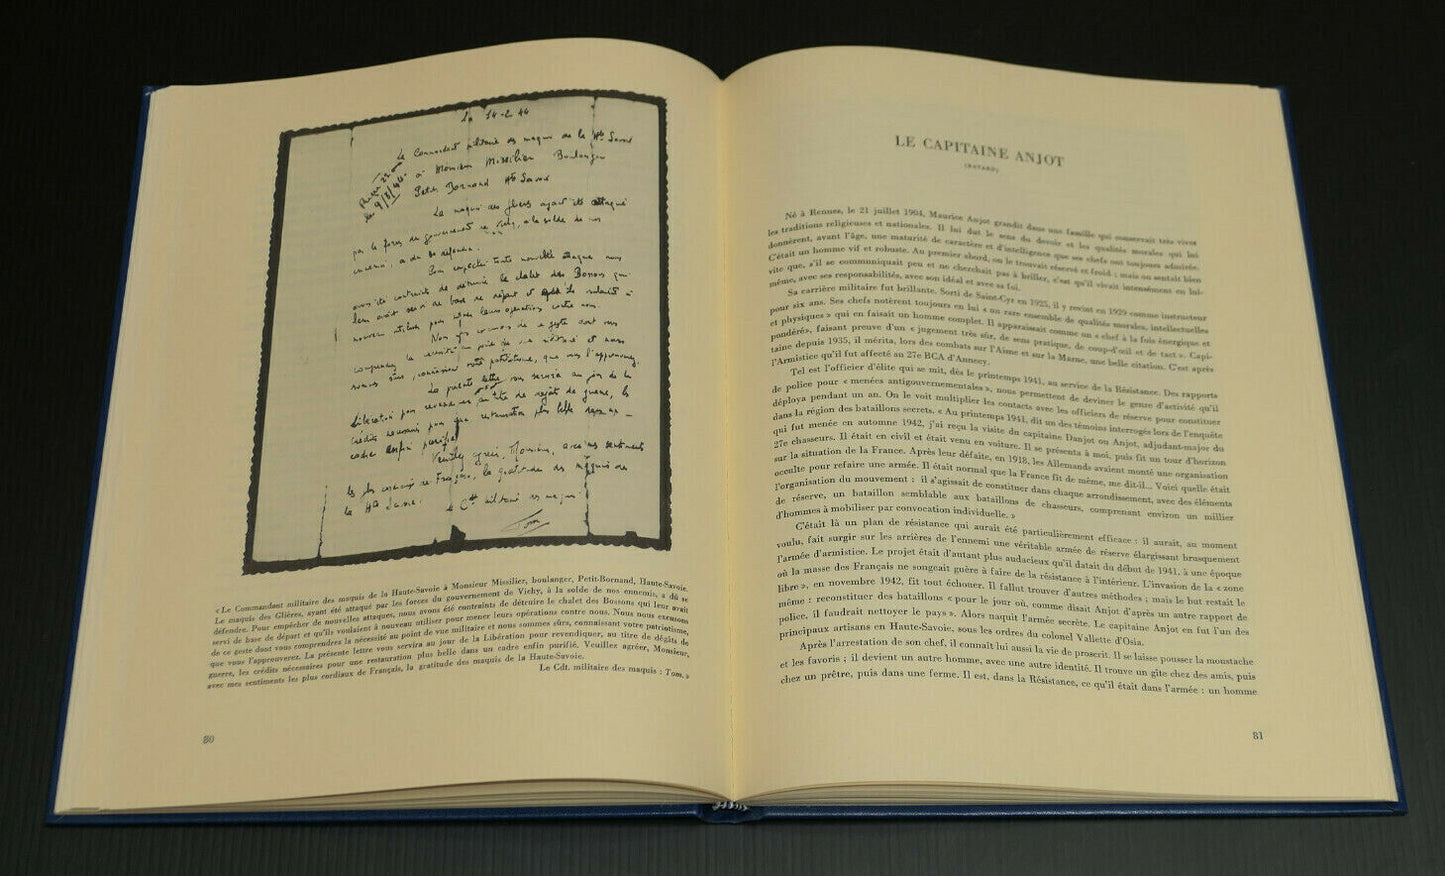 Le 14-2-44
Le Commandant militaire des maquis de la Hte Savoie
à Monsieur Missilier Boulanger
Petit Bornand Hte Savoie
le 9/3/44
Le maquis des Glières ayant été attaqué
par les forces du gouvernement de Vichy, à la solde de nos
ennemis, a dû se défendre.
Pour empêcher toute nouvelle attaque nous
avons été contraints de détruire le chalet des Bossons qui
leur avait servi de base de départ et
nouveau utiliser pour mener leurs opérations contre nous.
Nous
comprenez la nécessité au point de vue militaire et nous
sommes sûrs, connaissant votre patriotisme, que vous l'approuverez.
La présente lettre vous servira au jour de la
Libération pour revendiquer au titre de dégâts de guerre, les
crédits nécessaires pour une restauration plus belle dans un
cadre enfin purifié.
Veuillez agréer, Monsieur, avec mes sentiments
les plus cordiaux de Français, la gratitude des maquis de
la Hte Savoie.
le Cdt militaire des maquis
Tom
« Le Commandant militaire des maquis de la Haute-Savoie à Monsieur Missilier, boulanger, Petit-Bornand, Haute-Savoie.
Le maquis des Glières, ayant été attaqué par les forces du gouvernement de Vichy, à la solde de nos ennemis, a dû se
défendre. Pour empêcher de nouvelles attaques, nous avons été contraints de détruire le chalet des Bossons qui leur avait
servi de base de départ et qu'ils voulaient à nouveau utiliser pour mener leurs opérations contre nous. Nous nous excusons
de ce geste dont vous comprendrez la nécessité au point de vue militaire et nous sommes sûrs, connaissant votre patriotisme,
que vous l'approuverez. La présente lettre vous servira au jour de la Libération pour revendiquer, au titre de dégâts de
guerre, les crédits nécessaires pour une restauration plus belle dans un cadre enfin purifié. Veuillez agréer, Monsieur,
avec mes sentiments les plus cordiaux de Français, la gratitude des maquis de la Haute-Savoie.
Le Cdt. militaire des maquis : Tom. »
80
LE CAPITAINE ANJOT
(BAYARD)
Né à Rennes, le 21 juillet 1904, Maurice Anjot grandit dans une famille qui conservait très vives
les traditions religieuses et nationales. Il lui dut le sens du devoir et les qualités morales qui lui
donnèrent, avant l'âge, une maturité de caractère et d'intelligence que ses chefs ont toujours admirée.
C'était un homme vif et robuste. Au premier abord, on le trouvait réservé et froid ; mais on sentait bien
vite que, s'il se communiquait peu et ne cherchait pas à briller, c'est qu'il vivait intensément en lui-
même, avec ses responsabilités, avec son idéal et avec sa foi.
Sa carrière militaire fut brillante. Sorti de Saint-Cyr en 1925, il y revint en 1929 comme instructeur
pour six ans. Ses chefs notèrent toujours en lui « un rare ensemble de qualités morales, intellectuelles
et physiques » qui en faisait un homme complet. Il apparaissait comme un « chef à la fois énergique et
pondéré », faisant preuve d'un « jugement très sûr, de sens pratique, de coup-d'œil et de tact ». Capi-
taine depuis 1935, il mérita, lors des combats sur l'Aisne et sur la Marne, une belle citation. C'est après
l'Armistice qu'il fut affecté au 27e BCA d'Annecy.
Tel est l'officier d'élite qui se mit, dès le printemps 1941, au service de la Résistance. Des rapports
de police pour « menées antigouvernementales », nous permettent de deviner le genre d'activité qu'il
déploya pendant un an. On le voit multiplier les contacts avec les officiers de réserve pour constituer
dans la région des bataillons secrets. « Au printemps 1941, dit un des témoins interrogés lors de l'enquête
qui fut menée en automne 1942, j'ai reçu la visite du capitaine Danjot ou Anjot, adjudant-major du
27e chasseurs. Il était en civil et était venu en voiture. Il se présenta à moi, puis fit un tour d'horizon
sur la situation de la France. Après leur défaite, en 1918, les Allemands avaient monté une organisation
occulte pour refaire une armée. Il était normal que la France fit de même, me dit-il... Voici quelle était
l'organisation du mouvement : il s'agissait de constituer dans chaque arrondissement, avec des éléments
de réserve, un bataillon semblable aux bataillons de chasseurs, comprenant environ un millier
d'hommes à mobiliser par convocation individuelle. »
C'était là un plan de résistance qui aurait été particulièrement efficace : il aurait, au moment
voulu, fait surgir sur les arrières de l'ennemi une véritable armée de réserve élargissant brusquement
l'armée d'armistice. Le projet était d'autant plus audacieux qu'il datait du début de 1941, à une époque
où la masse des Français ne songeait guère à faire de la résistance à l'intérieur. L'invasion de la « zone
libre », en novembre 1942, fit tout échouer. Il fallut trouver d'autres méthodes ; mais le but restait le
même : reconstituer des bataillons « pour le jour où, comme disait Anjot d'après un autre rapport de
police, il faudrait nettoyer le pays ». Alors naquit l'armée secrète. Le capitaine Anjot en fut l'un des
principaux artisans en Haute-Savoie, sous les ordres du colonel Vallette d'Osia.
Après l'arrestation de son chef, il connaît lui aussi la vie de proscrit. Il se laisse pousser la moustache
et les favoris ; il devient un autre homme, avec une autre identité. Il trouve un gîte chez des amis, puis
chez un prêtre, puis dans une ferme. Il est, dans la Résistance, ce qu'il était dans l'armée : un homme
81